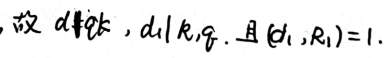 ,故 d∤qk , d₁|k,q. 且(d₁,R₁)=1.